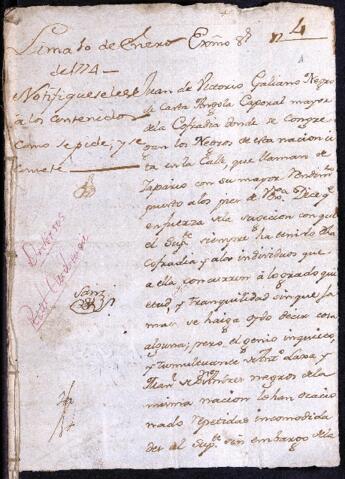 Lima 10 de Enero
de 1774
Notifiquesele
a los contenidos
como se pide; y se
comete
Exmo Sr
4
Juan de Victorio Galiano Negro
de Casta Angola Caporal mayor
de la Cofradia donde se congre
gan los Negros de esta nacion ci
ta en la Calle, que llaman de
con su mayor
puesto a los pies de VExa Dice qe
en fuerza de la
el Supe siempre ha tenido dha
cofradia y a los individuos que
a ella concurren a logrado quie
tud, y tranquilidad sin que ja
mas se haiga oydo decir cosa
alguna; pero el genio inquieto,
y tumultuante de Franco Lara, y
Juan de negros de la
misma nacion lo han ocacio
nado repetidas incomodida
des al Supe sin embargo de la